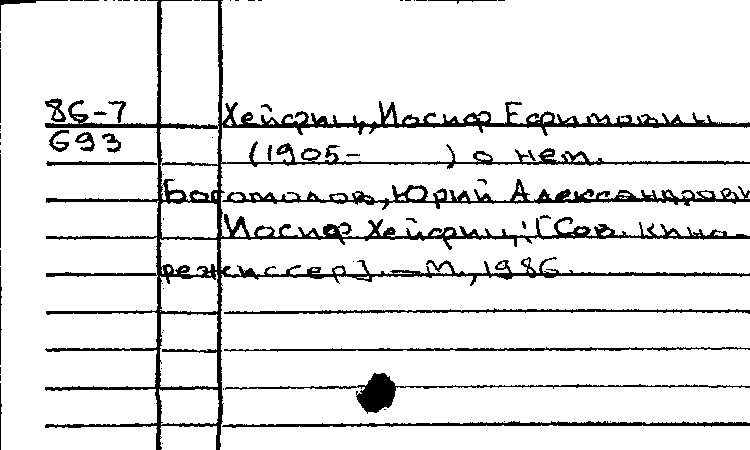 86-7 Хейфиц, Иосиф Ефимович
693 (1905- ) о нем.
Богомолов, Юрий Александрови
Иосиф Хейфиц: [Сов. кино-
режиссер]. — М., 1986.